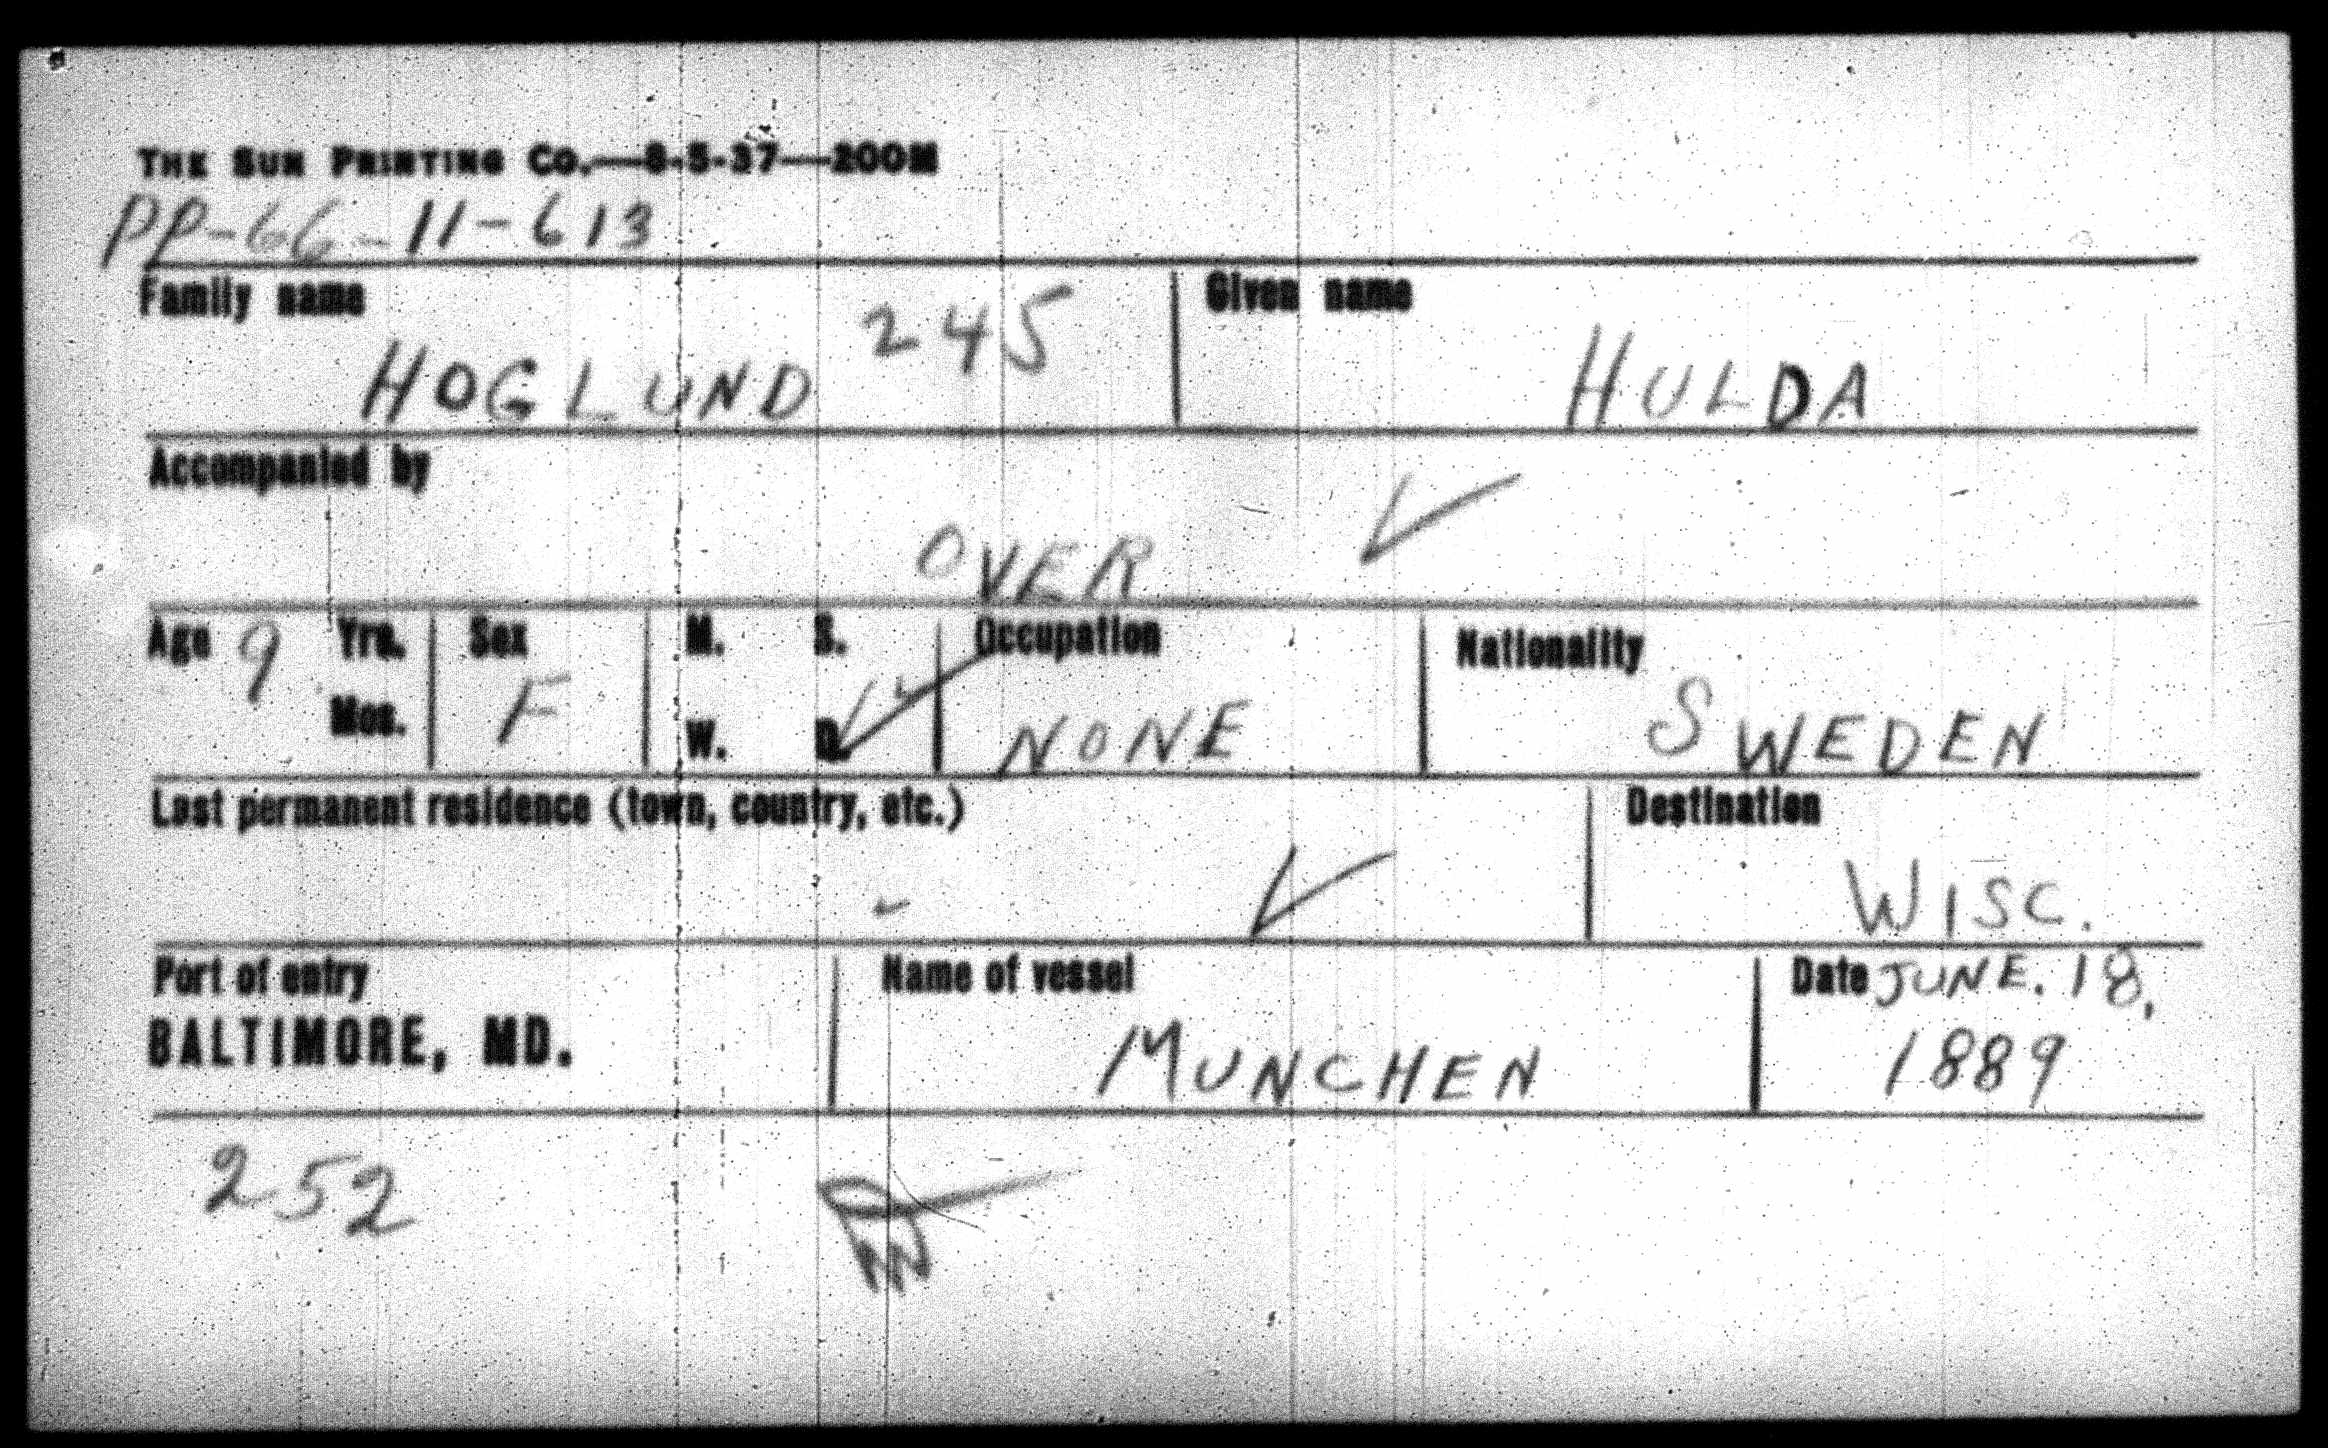 THE SUN PRINTING CO.—8-5-37—200M
PP-66-11-613
Family name
HOGLUND 245
Given name
HULDA
Accompanied by
OVER
Age 9 Yrs.
Mos.
Sex
F
M. S.
W. D.
Occupation
NONE
Nationality
SWEDEN
Last permanent residence (town, country, etc.)
Destination
WISC.
Port of entry
BALTIMORE, MD.
Name of vessel
MUNCHEN
Date JUNE. 18,
1889
252